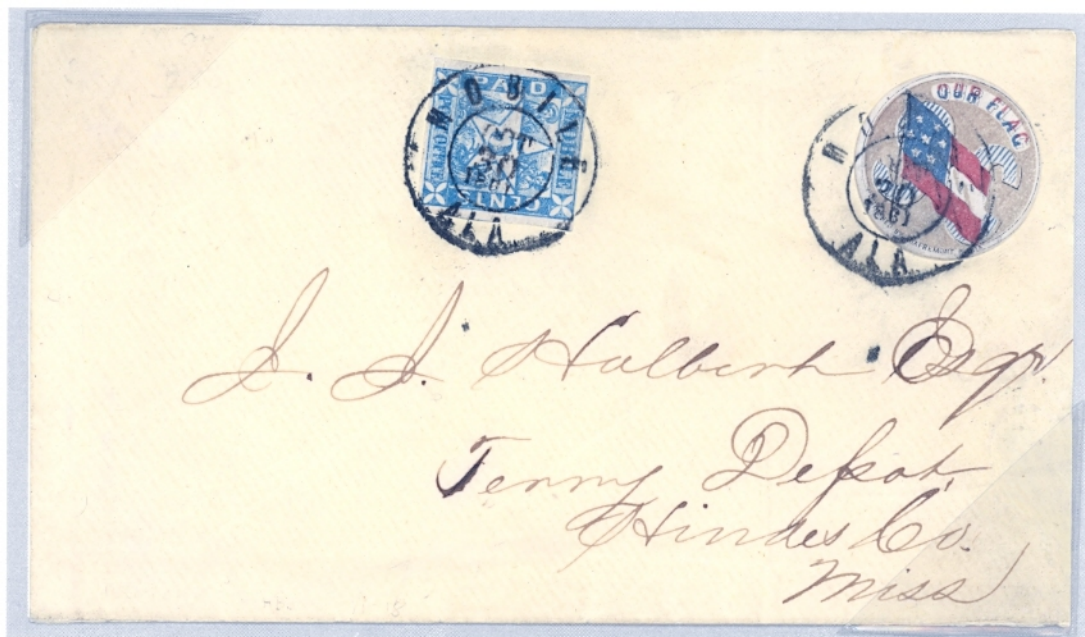 PAID
MOBILE
CENTS
MOBILE
20
1861
ALA
OUR FLAG
20
1861
ALA
J. J. Halbert Esqr
Terry Depot,
Hindes Co.
Miss